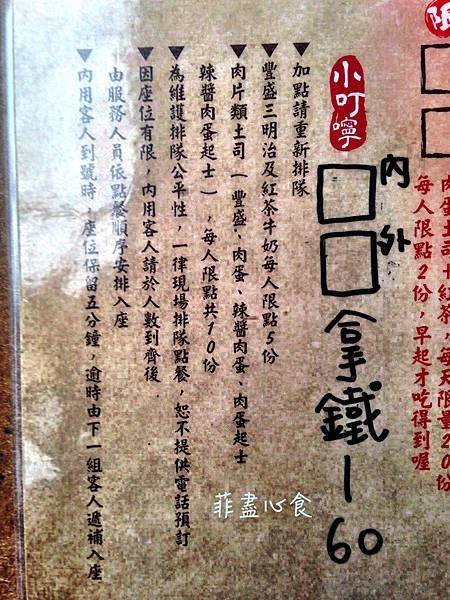 限
肉蛋土司+紅茶,每天限量20份
每人限點2份,早起才吃得到喔
內 外 拿鐵-60
小叮嚀
▼加點請重新排隊
▼豐盛三明治及紅茶牛奶每人限點5份
▼肉片類土司(豐盛、肉蛋、辣醬肉蛋、肉蛋起士
辣醬肉蛋起士),每人限點共10份
▼為維護排隊公平性,一律現場排隊點餐,恕不提供電話預訂
▼因座位有限,內用客人請於人數到齊後.
由服務人員依點餐順序安排入座
▼內用客人到號時,座位保留五分鐘,逾時由下一組客人遞補入座
菲盡心食